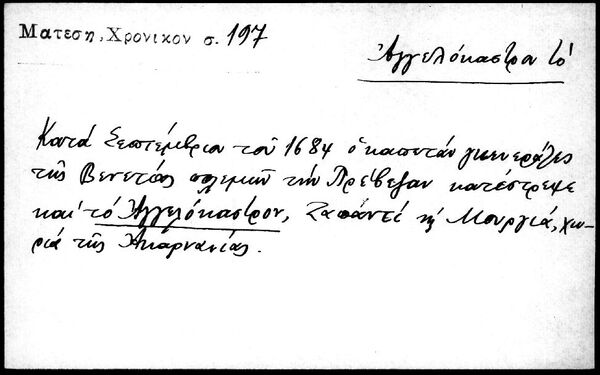 Ματεση, Χρονικον σ. 197
Ἀγγελόκαστρον τὸ
Κατὰ Σεπτέμβριον τοῦ 1684 ὁ καπετάν γγενεράλες
τῆς Βενετίας πολεμῶν τὴν Πρέβεζαν κατέστρεψε
καὶ τὸ Ἀγγελόκαστρον, Ζαπάντι κ̀ Μουργιά, χω-
ριά τῆς Ἀκαρνανίας.